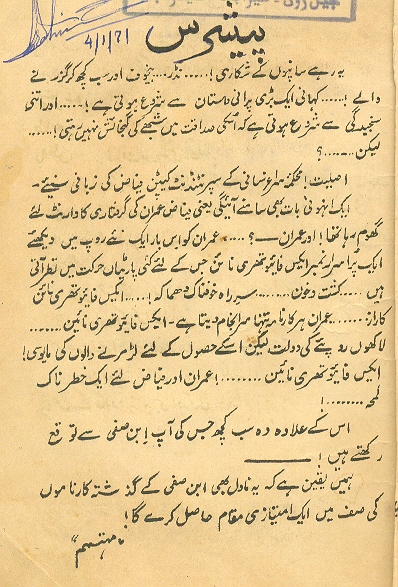 4/1/71
پیشرس
یہ رہے سانپوں کے شکاری !..... نڈر.... بیخوف اور سب کچھ کر گزرنے
والے !..... کہانی ایک بڑی پرانی داستان سے شروع ہوتی ہے !..... اور اتنی
سنجیدگی سے شروع ہوتی ہے کہ اسکی صداقت میں شبھے کی گنجائش نہیں رہتی !.....
لیکن ..... ؟
اصلیت ! محکمہ سراغرسانی کے سپرنٹنڈنٹ کیپٹن فیاض کی زبانی سنیئے۔
ایک انہونی بات بھی سامنے آئیگی یعنی فیاض عمران کی گرفتاری کا وارنٹ لئے
گھوم رہا تھا ! اور عمران — ؟ ..... عمران کو اس بار ایک نئے روپ میں دیکھئے
ایک پراسرار نمبر ایکس فائیو تھری نائن جس کے لئے کئی پارٹیاں حرکت میں نظر آتی
ہیں ..... کشت و خون ....... سر راہ خوفناک دھماکہ !..... ایکس فائیو تھری نائن
کا راز ....... عمران ہر کارنامہ تنہا سرانجام دیتا ہے - ایکس فائیو تھری نائین .......
لاکھوں روپئے کی دولت لیکن اسکے حصول کے لئے لڑ مرنے والوں کی مایوسی !
ایکس فائیو تھری نائین ........! عمران اور فیاض لئے ایک خطرناک
لمحہ ........!
اس کے علاوہ وہ سب کچھ جس کی آپ ابن صفی سے توقع
رکھتے ہیں ! ———
ہمیں یقین ہے کہ یہ ناول بھی ابن صفی کے گذشتہ کارناموں
کی صف میں ایک امتیازی مقام حاصل کرے گا !
”مہتمم“